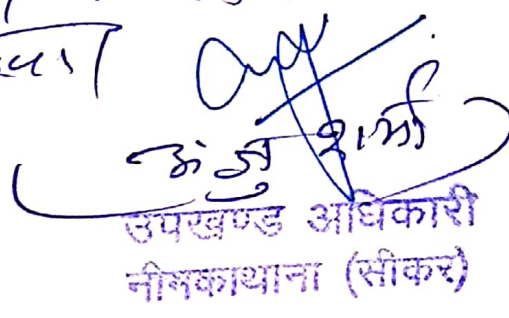 अंजु शर्मा
उपखण्ड अधिकारी
नीमकाथाना (सीकर)